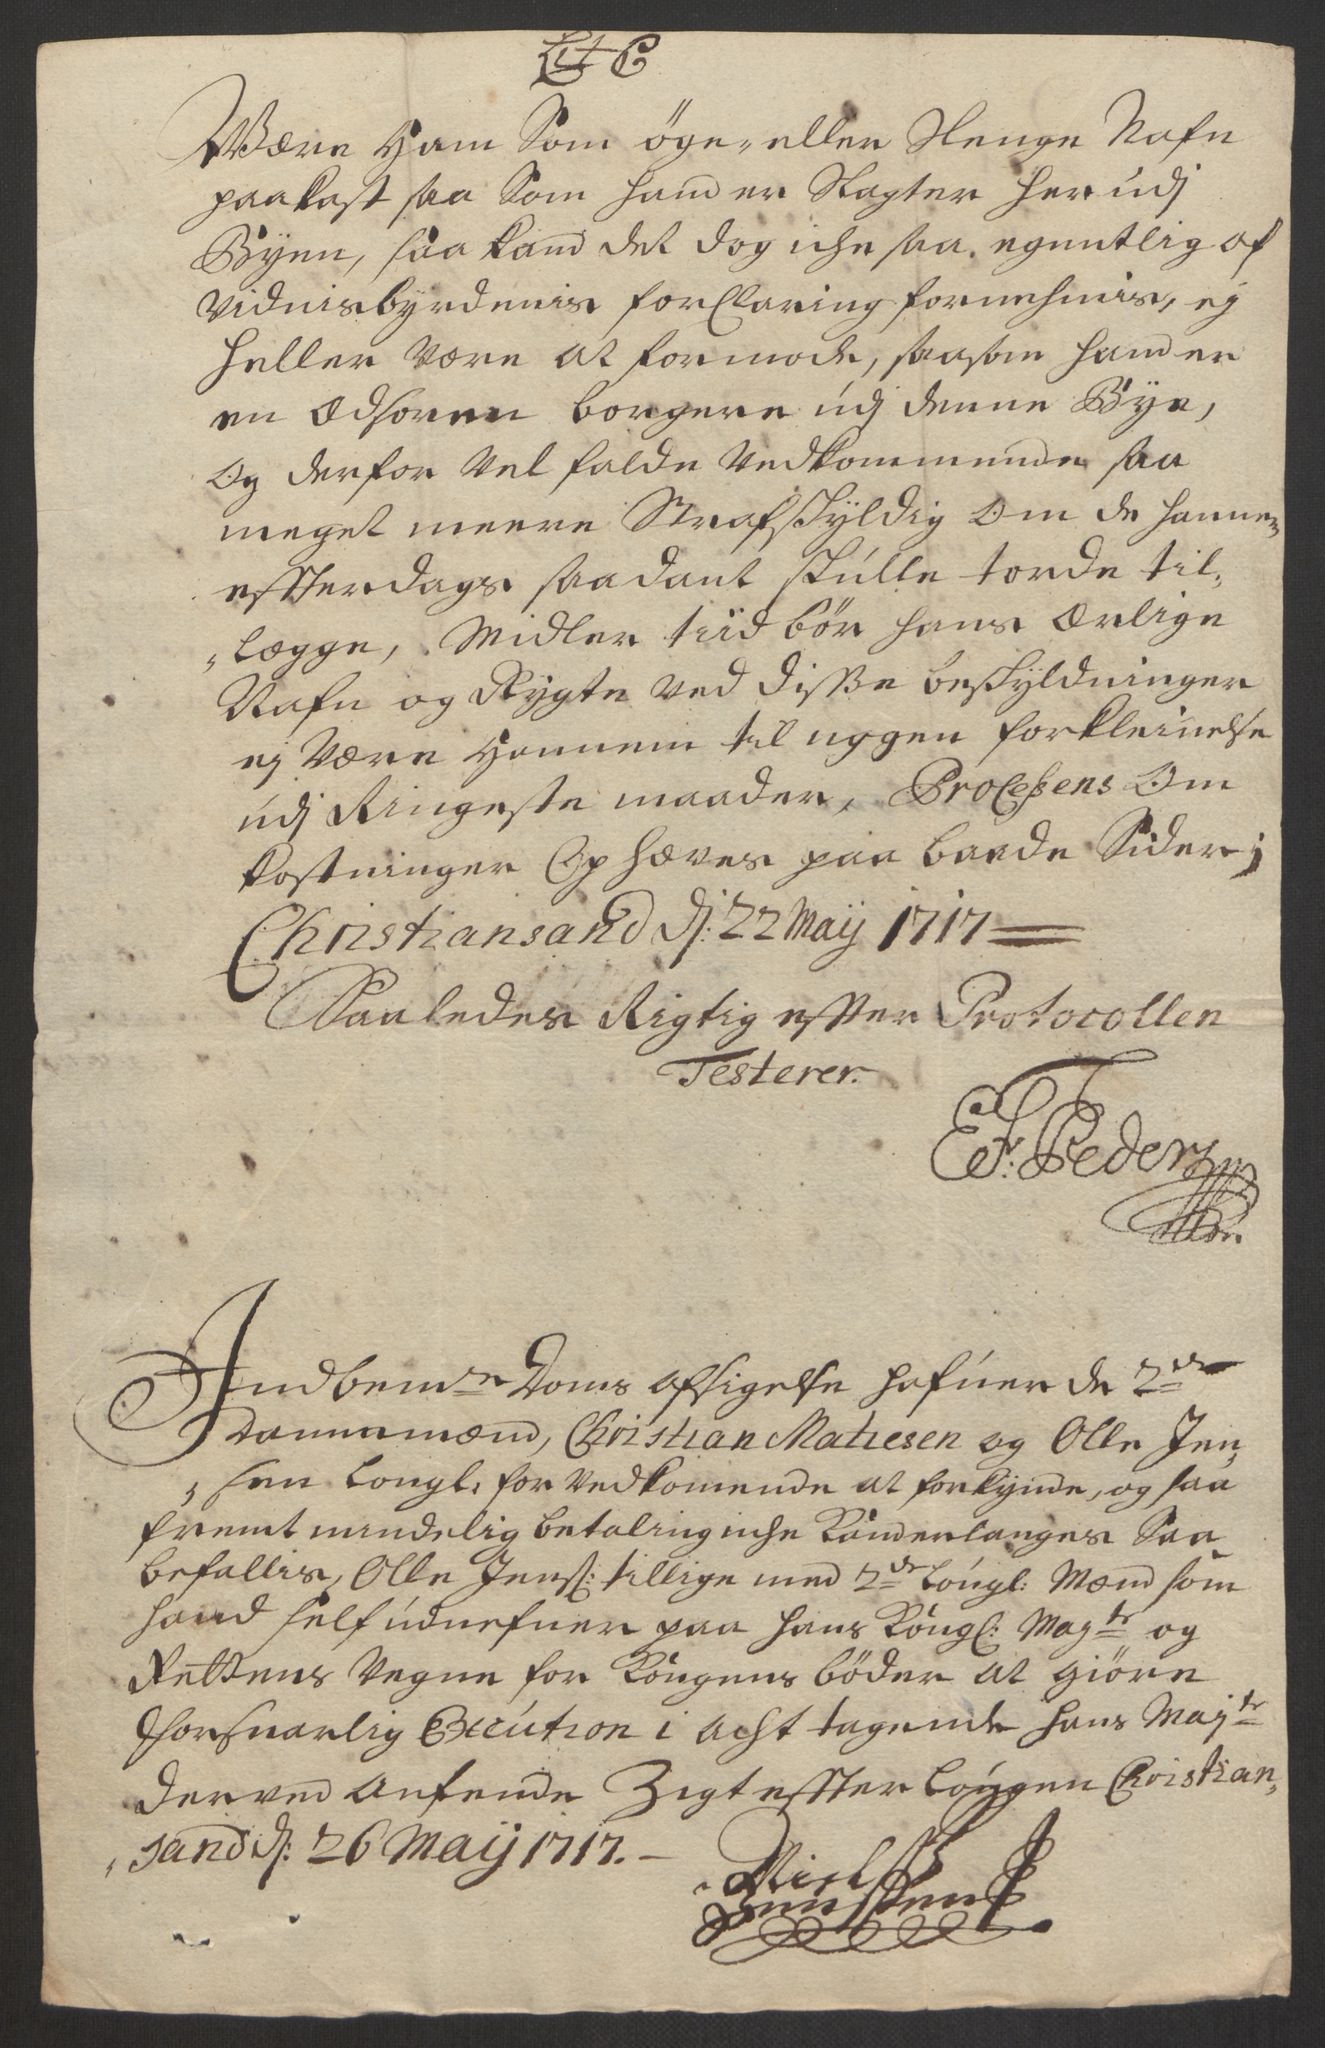 Lit C
Være Ham Som öge, eller Slenge Nafn
paakast saa Som hand er Slagter her udj
Byen, saa kand det dog iche saa egentlig af
Vidnisbyrdenis forClaring fornehmis, ej
heller være at formode, saasom hand er
en Edsoren borgere udj denne Bye,
Og derfor vel falde Vedkommende saa
meget meere Strafskyldig Om de hannem
effterdags saadant skulle torde til,
,lægge, Midler tiid bör hans Ærlige
Nafn og Rygte ved disse beskyldninger
ej Være Hannem til nogen forkleinelse
udj Ringeste maader, Processens Om
kostninger Ophæves paa baade Sider;
Christiansand dj: 22 Maij 1717
Saaledes Rigtig effter Protocollen
Testerer.
E: Peders
Indbemte Doms afsigelse hafuer de 2de
Dannemænd, Christian Matiesen og Olle Jen,
,sen Lougl. for Vedkomende at forkynde, og saa
fremt mindelig betaling iche Kand erlanges Saa
befallis, Olle Jenss: tillige med 2de Lougl: Mænd som
hand self udnefner paa hans Kongl: Mayts og
Rettens Vegne for Kongens böder at giöre
forsuarlig Execution i acht tagende hans Majts
derved Anfende Zigt effter Lougen Christian,
,sand dj: 26 Maij 1717.
Niels
Jenssen